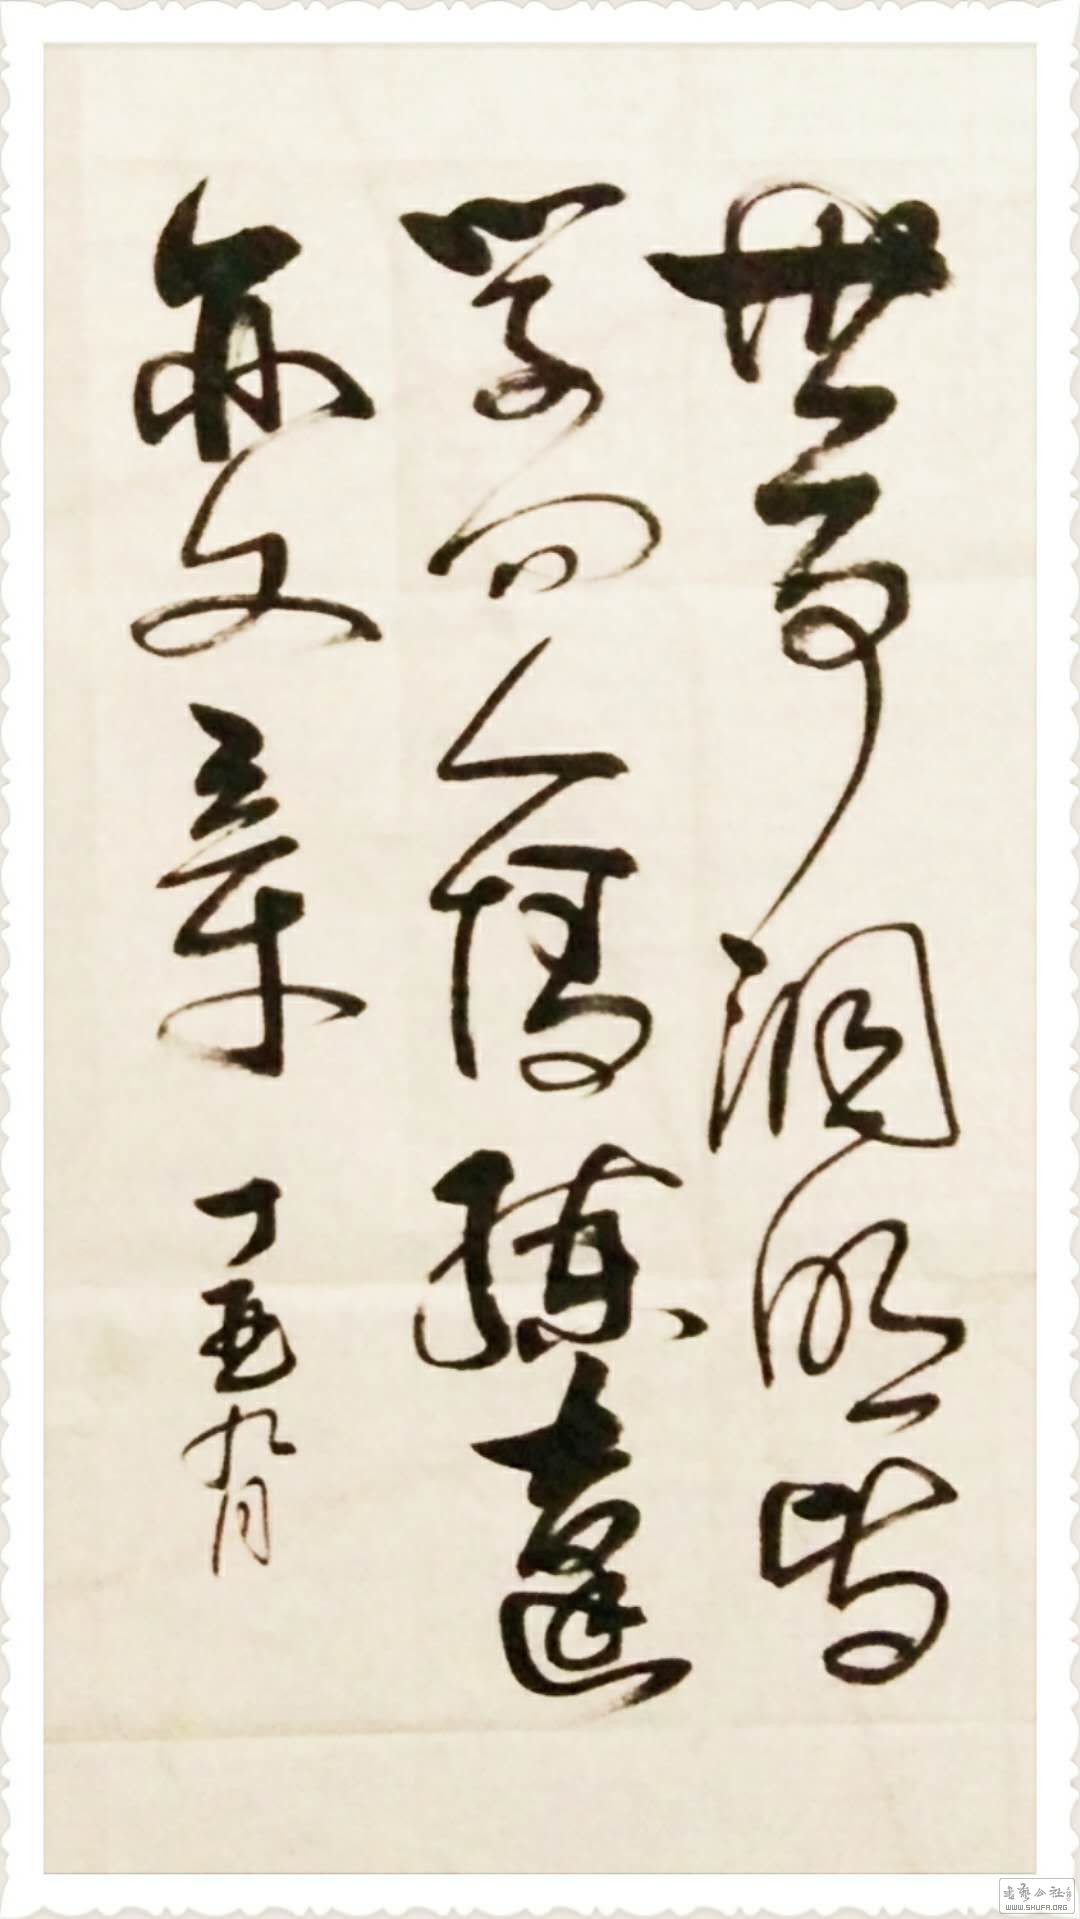 世事洞明皆
学问人情練達
亦文章
丁酉九月
書藝公社
WWW.SHUFA.ORG